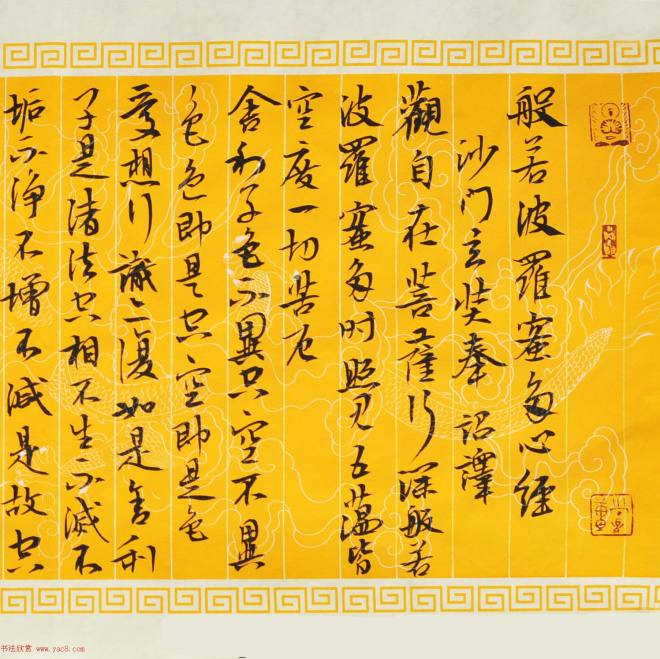 般若波羅蜜多心經
沙門玄奘奉詔譯
觀自在菩薩行深般若
波羅蜜多時照見五蘊皆
空度一切苦厄
舍利子色不異空空不異
色色即是空空即是色
受想行識亦復如是舍利
子是諸法空相不生不滅不
垢不淨不增不減是故空
书法欣赏 www.yac8.com